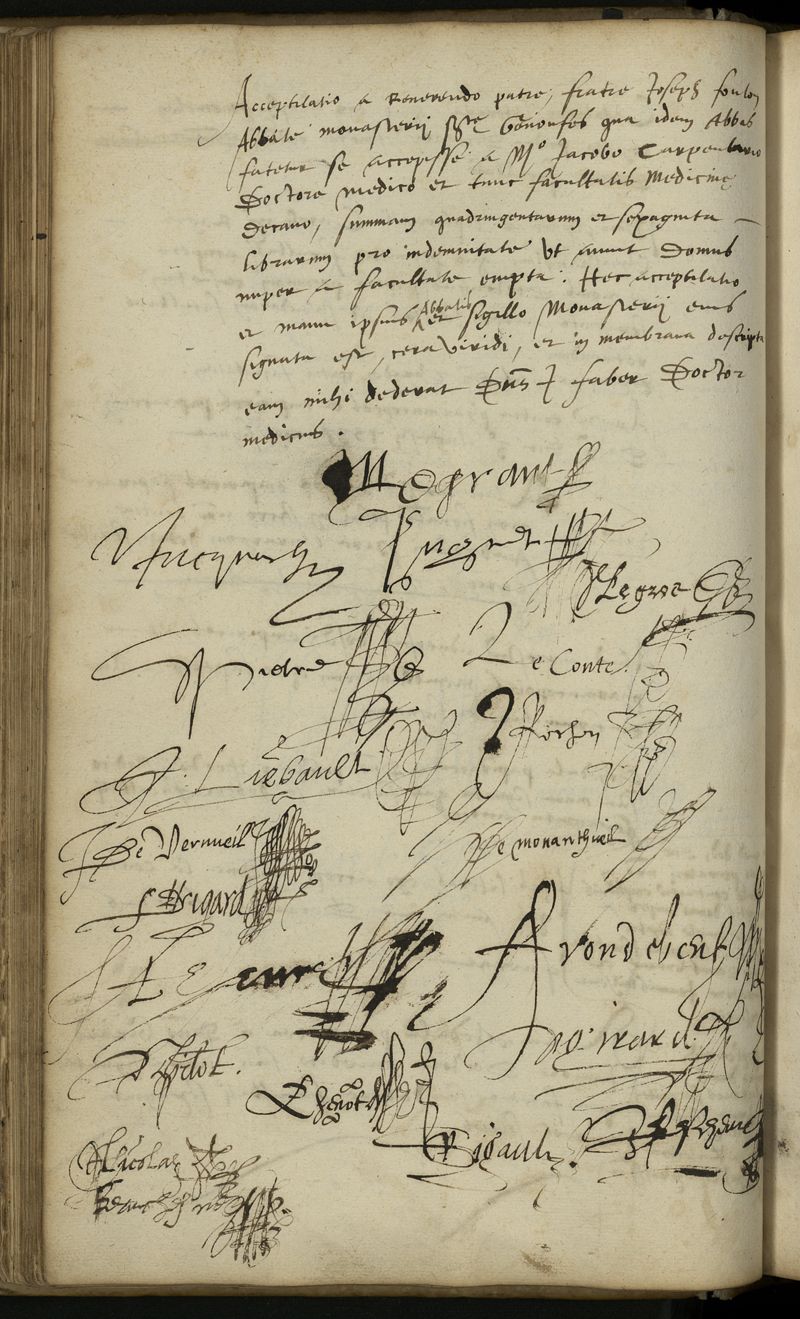 Acceptilatio a Reverendo patre, fratre Joseph foulon
Abbate monasterij sctę Genovefes qua idem Abbas
fatetur se accepisse a Mo Jacobo Carpentario
Doctore medico et tunc facultatis Medicinę
decano, summam quadringentarum et sexaginta
librarum pro indemnitate ut aiunt Domus
nuper a facultate empta. Hec acceptilatio
et manu ipsius Abbatis et sigillo Monasterij eius
signata est, cera viridi, et in membrana descripta
eam mihi dederat Dns J faber Doctor
medicus.
Megrant
Jacquart
Legree
Pietre Le Conte
J. Liebault
De Verneuil De monantheuil
Brigard
Rondebeuf
Girard
Bigault
Nicolas